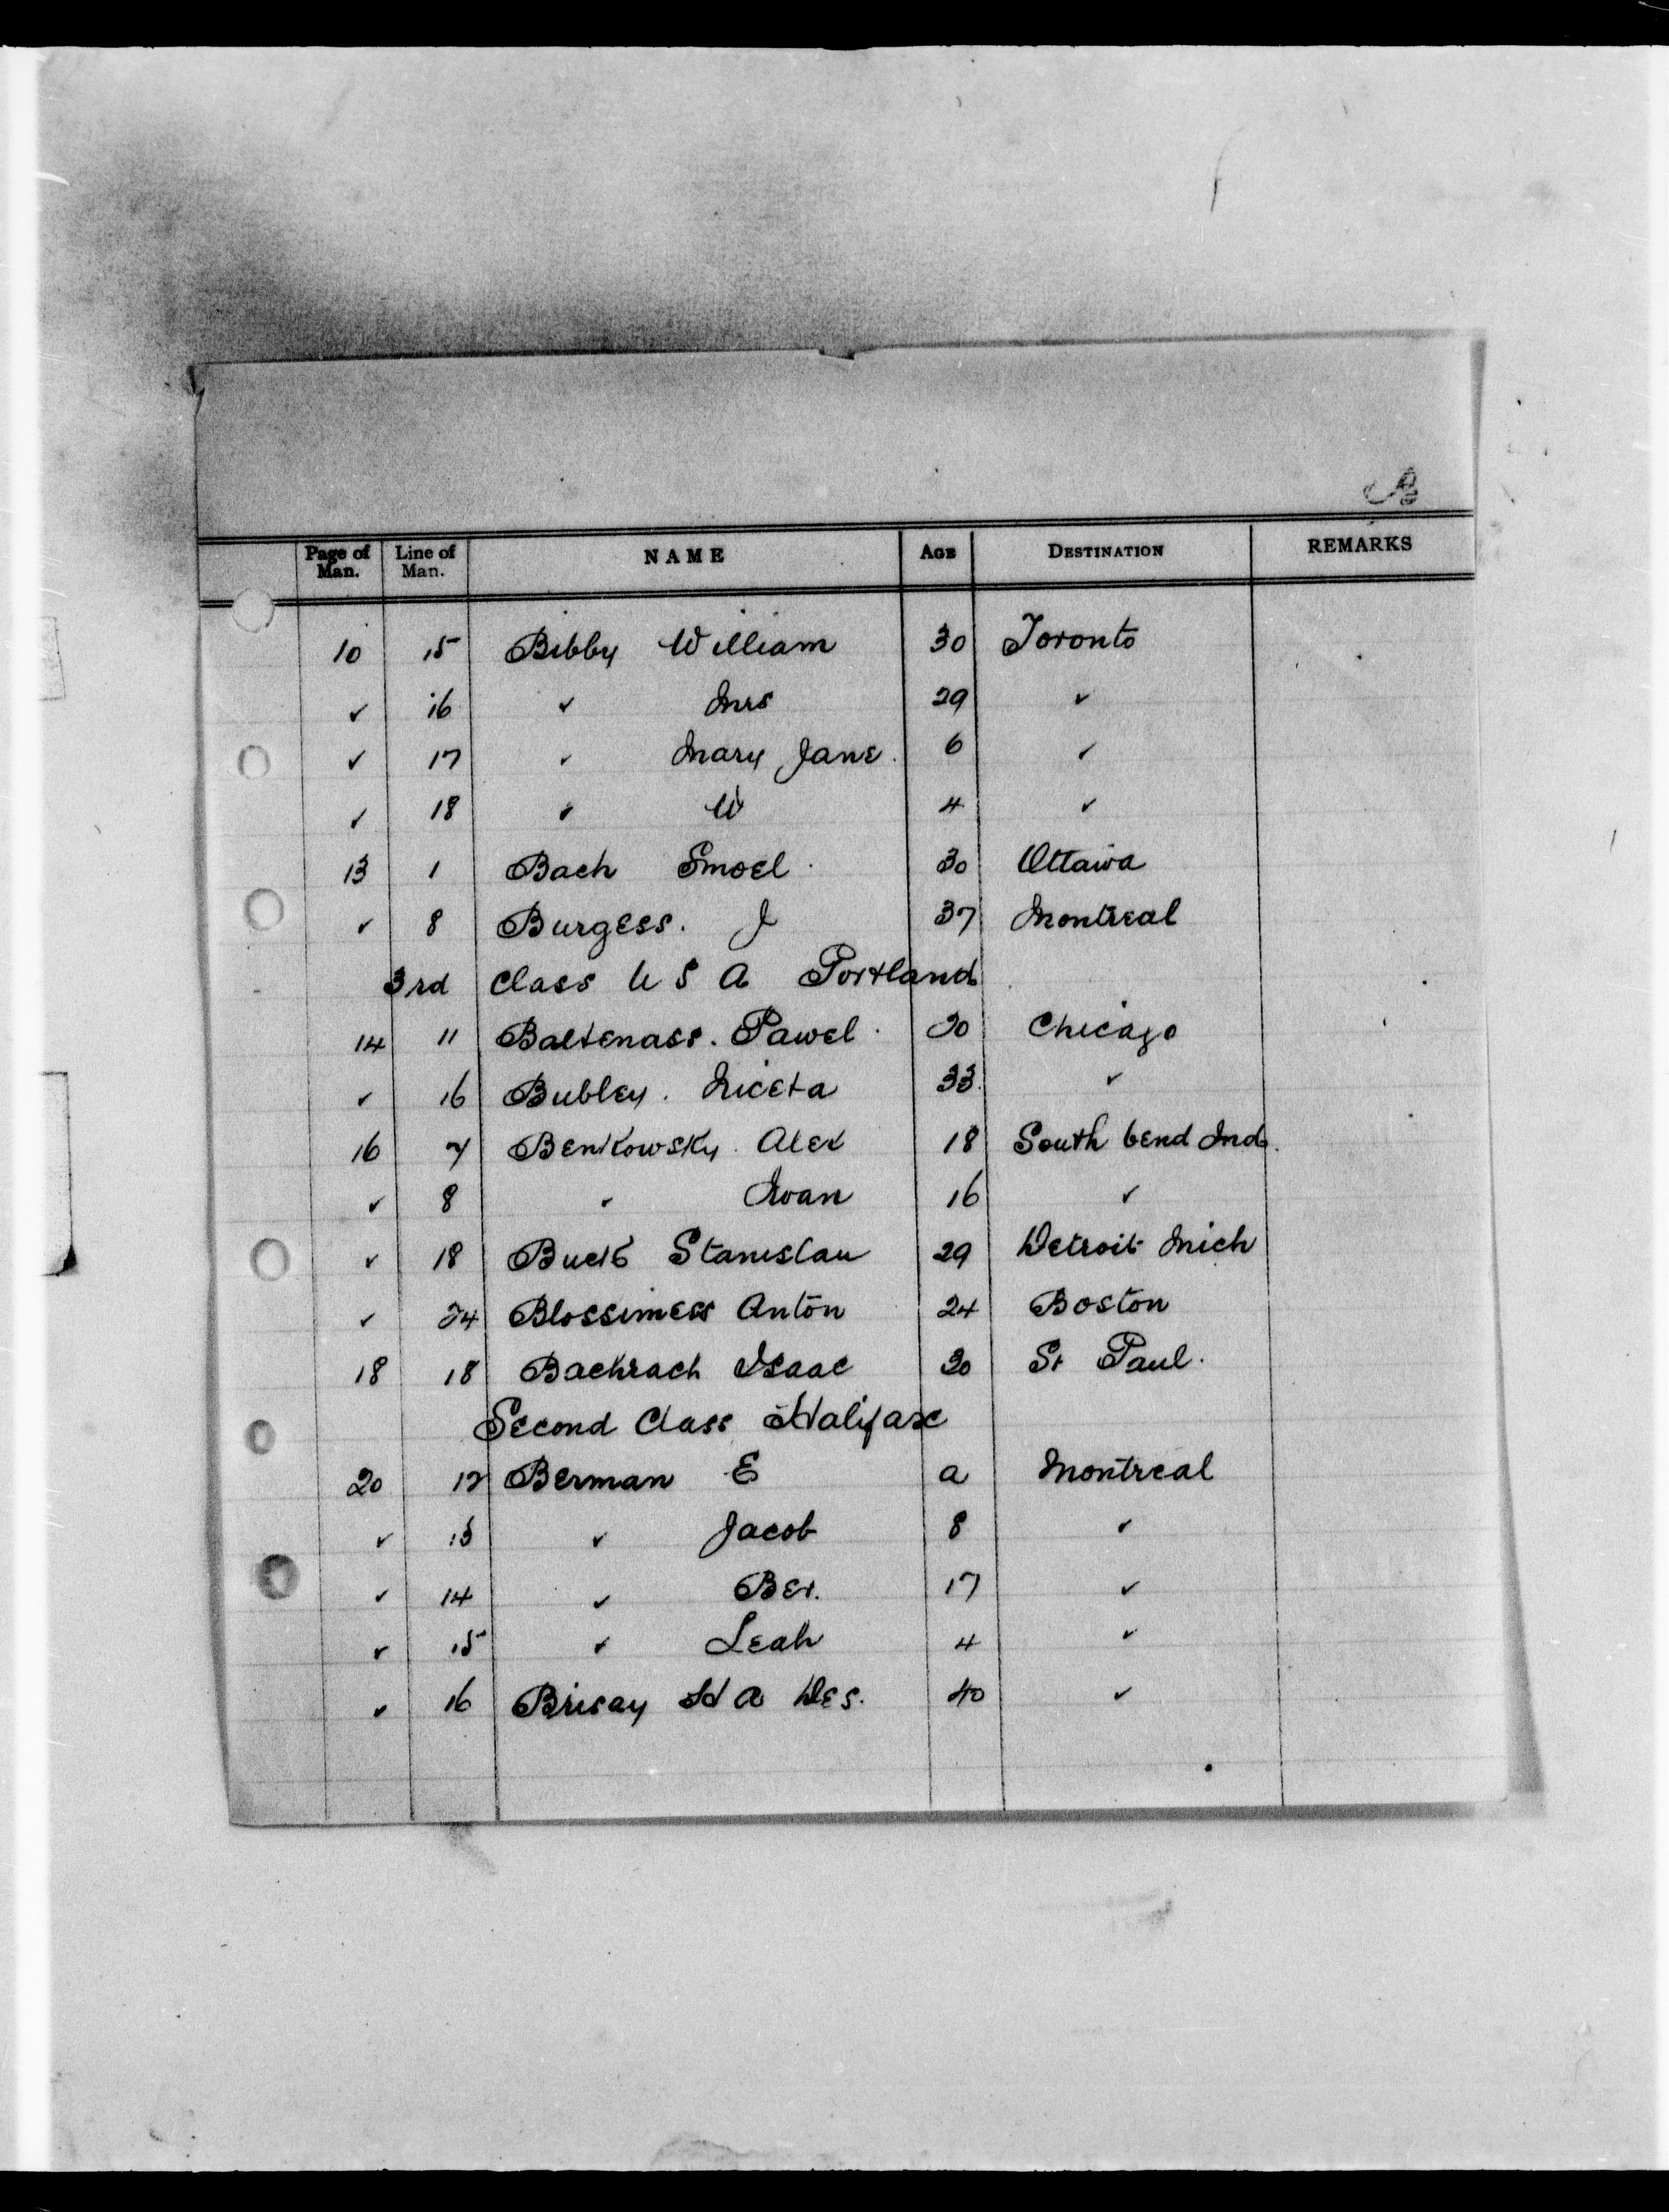 B
Page of Man. Line of Man. NAME AGE DESTINATION REMARKS
10 15 Bibby William 30 Toronto
✓ 16 ✓ Mrs 29 ✓
✓ 17 ✓ Mary Jane. 6 ✓
✓ 18 ✓ W 4 ✓
13 1 Bach Smoel. 30 Ottawa
✓ 8 Burgess. J 37 Montreal
3rd Class U S A Portland
14 11 Pawel. Chicago
✓ 16 Bubley. Niceta 33. ✓
16 7 Benkowsky. Alex 18 South bend Ind.
✓ 8 ✓ Iwan 16 ✓
✓ 18 Stanislau 29 Detroit Mich
✓ 24 Anton 24 Boston
18 18 Bachrach Isaac St Paul.
Second Class Halifax
20 12 Berman E a Montreal
✓ 13 ✓ Jacob 8 ✓
✓ 14 ✓ Ber. 17 ✓
✓ 15 ✓ Leah 4 ✓
✓ 16 Brisay H A Des. 40 ✓